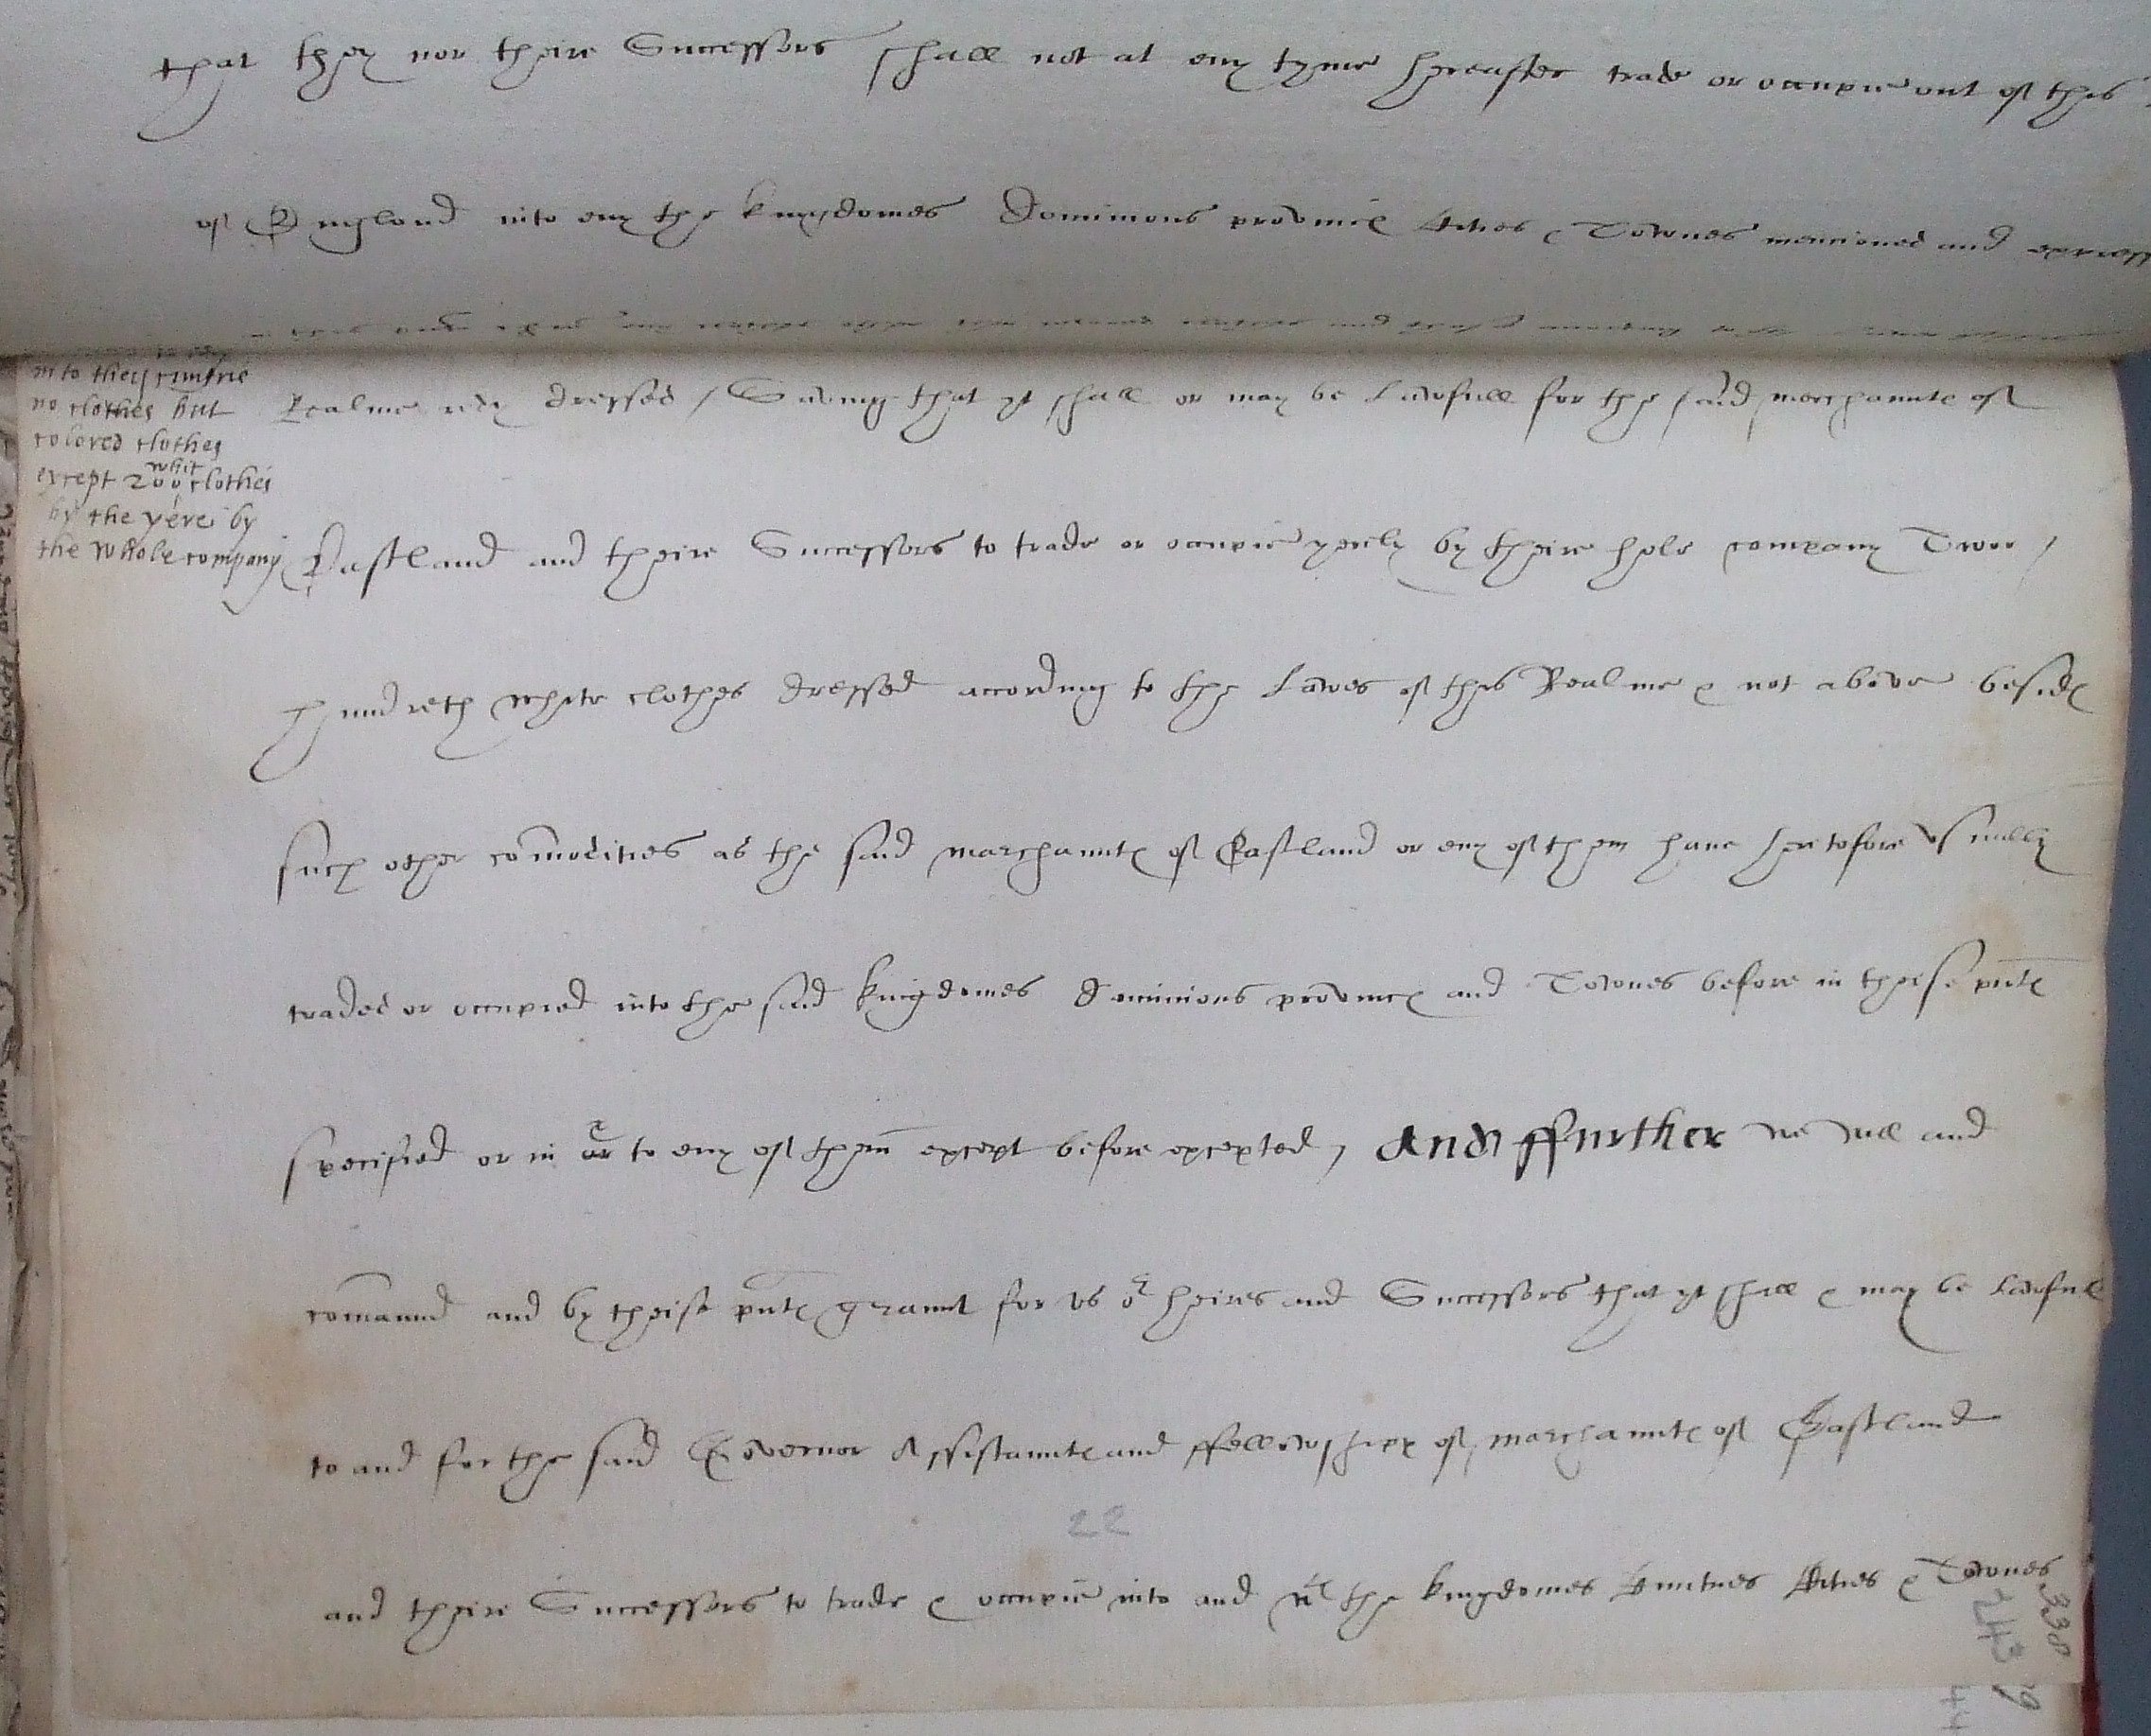 that they nor theire Successors shall not at eny tyme hereafter trade or occupie out of this
of England into eny the kingdomes Dominions province Cities & Townes mencioned and express
in to they cuntrie
no clothes but
colored clothes
except 200 whit clothes
by the yere by
the whole company
Realme redy dressed / Saving that yt shall or may be Lawfull for the said merchaunte of
Eastland and theire Successors to trade or occupie yerely by theire hole company Twoo /
Hundreth white clothes dressed according to the Lawes of this Realme & not above beside
such other comodities as the said marchaunte of Eastland or eny of them have heretofore usually
traded or occupied into the said kingdomes Dominions province and Townes before in theise pnte
specified or in or & to eny of them except before excepted / And ffurther we will and
comaund and by theise pnte graunt for us or heires and Successors that yt shall & may be Lawfull
to and for the said Governor Assistaunte and ffellowshipp of marchaunte of Eastland
22
and theire Successors to trade & occupie into and wt the kingdomes Cuntries Cities & Townes
338
243